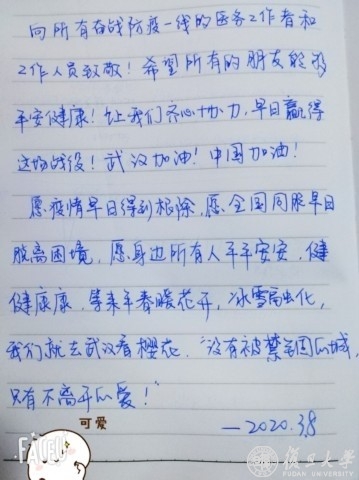 向所有奋战防疫一线的医务工作者和
工作人员致敬！希望所有的朋友能够
平安健康！让我们齐心协力，早日赢得
这场战役！武汉加油！中国加油！
愿疫情早日得到根除，愿全国同胞早日
脱离困境，愿身边所有人平平安安，健
健康康，等来年春暖花开，冰雪融化，
我们就去武汉看樱花，“没有被禁锢的城，
只有不离开的爱！”
—2020.3.8
可爱
復旦大學
FUDAN UNIVERSITY